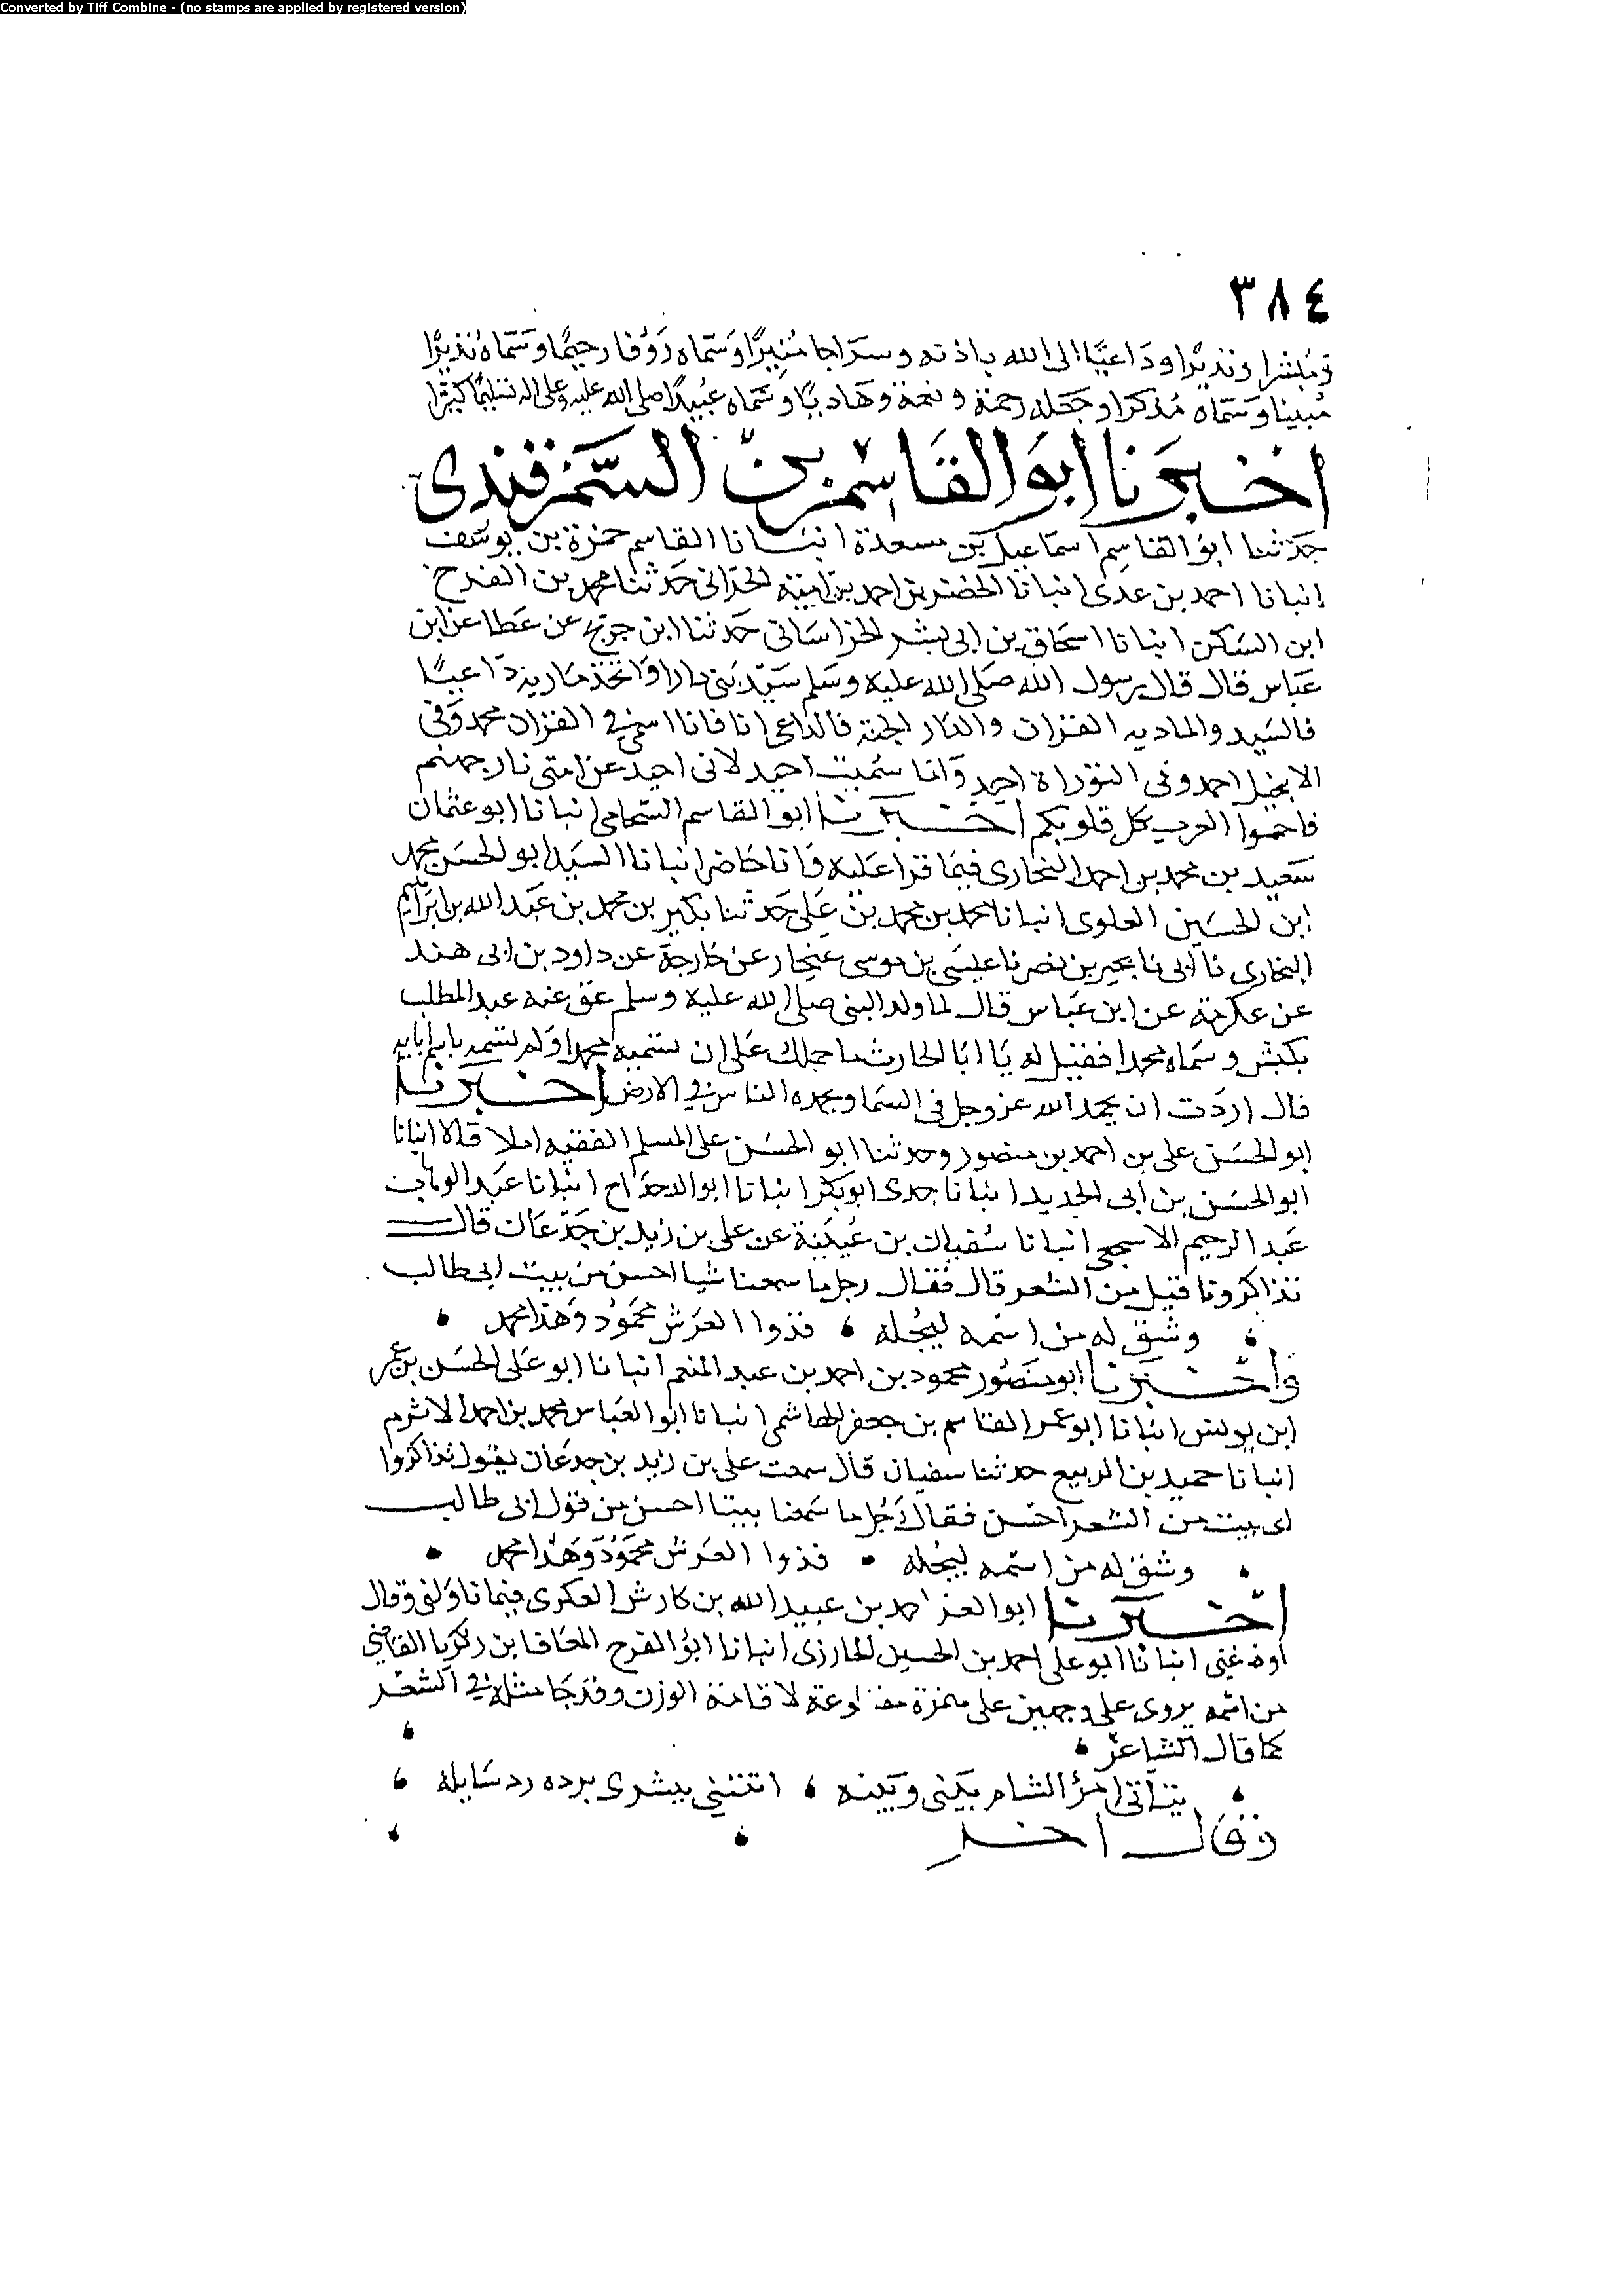 Converted by Tiff Combine - (no stamps are applied by registered version)
٣٨٤
ومبشرا ونذيرا وداعيا الى الله باذنه وسراجا منيرا وسماه رؤفا رحيما وسماه نذيرا
مبينا وسماه مذكرا وجعله رحمة ونعمة وهاديا وسماه عبيدا صلى الله عليه وعلى اله تسليما كثيرا
اخبرنا ابو القاسم بن السمرقندى
حدثنا ابو القاسم اسماعيل بن مسعدة انبانا القاسم حمزة بن يوسف
انبانا احمد بن عدى انبانا الخضر بن احمد بن امية الحرانى حدثنا محمد بن الفرج
ابن السكن انبانا اسحاق بن ابى بشر الخراسانى حدثنا ابن جريج عن عطا عن ابن
عباس قال قال رسول الله صلى الله عليه وسلم سيد بنى دارا واتخذ مادبة داعيا
فالسيد والمادبه القران والدار الجنة فالداعى انا فانا اسمى فى القران محمد وفى
الانجيل احمد وفى التوراة احيد وانا سميت احيد لانى احيد عن امتى نار جهنم
فاحبوا العرب بكل قلوبكم اخبرنا ابو القاسم الشحامى انبانا ابو عثمان
سعيد بن محمد بن احمد البخارى فيما قرا عليه وانا حاضر انبانا السيد ابو الحسن محمد
ابن الحسين العلوى انبانا محمد بن محمد بن على حدثنا بكير بن محمد بن عبد الله بن ابراهيم
البخارى نا ابى نا بحير بن نصر نا عيسى بن موسى غنجار عن خارجة عن داود بن ابى هند
عن عكرمة عن ابن عباس قال لما ولد النبى صلى الله عليه وسلم عق عنه عبد المطلب
بكبش وسماه محمدا فقيل له يا ابا الحارث ما حملك على ان سميته محمدا ولم تسمه باسم ابايه
قال اردت ان يحمد الله عز وجل فى السما ويحمده الناس فى الارض اخبرنا
ابو الحسن على بن احمد بن منصور وحدثنا ابو الحسن على المسلم الفقيه املا قالا انبانا
ابو الحسن بن ابى الحديد انبانا جدى ابو بكر انبانا ابو الدحداح انبانا عبد الوهاب
عبد الرحيم الاشجعى انبانا سفيان بن عيينة عن على بن زيد بن جدعان قال
تذاكرونا قيل من الشعر قال فقال رجل ما سمعنا شيا احسن من بيت ابى طالب
وشق له من اسمه ليجله • فذوا العرش محمود وهذا محمد •
واخبرنا ابو منصور محمود بن احمد بن عبد المنعم انبانا ابو على الحسن بن عمر
ابن يونس انبانا ابو عمر القاسم بن جعفر الهاشمى انبانا ابو العباس محمد بن احمد الاثرم
انبانا حميد بن الربيع حدثنا سفيان قال سمعت على بن زيد بن جدعان يقول تذاكروا
اى بيت من الشعر احسن فقال رجل ما سمعنا بيتا احسن من قول ابى طالب
• وشق له من اسمه ليجله • فذوا العرش محمود وهذا محمد •
اخبرنا ابو العز احمد بن عبيد الله بن كادش العكبرى فيما ناولنى وقال
اروه عنى انبانا ابو على احمد بن الحسين الجازرى انبانا ابو الفرج المعافا بن زكريا القاضى
من اسمه يروى على وجهين على همزة لاقامة الوزن وقد جا مثله فى الشعر
كما قال الشاعر •
اتانى امر الشام بينى وبينه • اتتنى ببشرى برده رد سايله •
وقال اخر